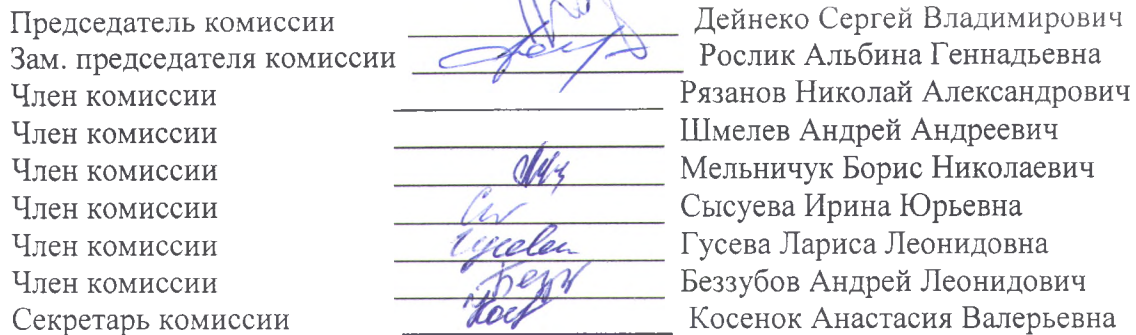 Председатель комиссии Дейнеко Сергей Владимирович
Зам. председателя комиссии Рослик Альбина Геннадьевна
Член комиссии Рязанов Николай Александрович
Член комиссии Шмелев Андрей Андреевич
Член комиссии Мельничук Борис Николаевич
Член комиссии Сысуева Ирина Юрьевна
Член комиссии Гусева Лариса Леонидовна
Член комиссии Беззубов Андрей Леонидович
Секретарь комиссии Косенок Анастасия Валерьевна